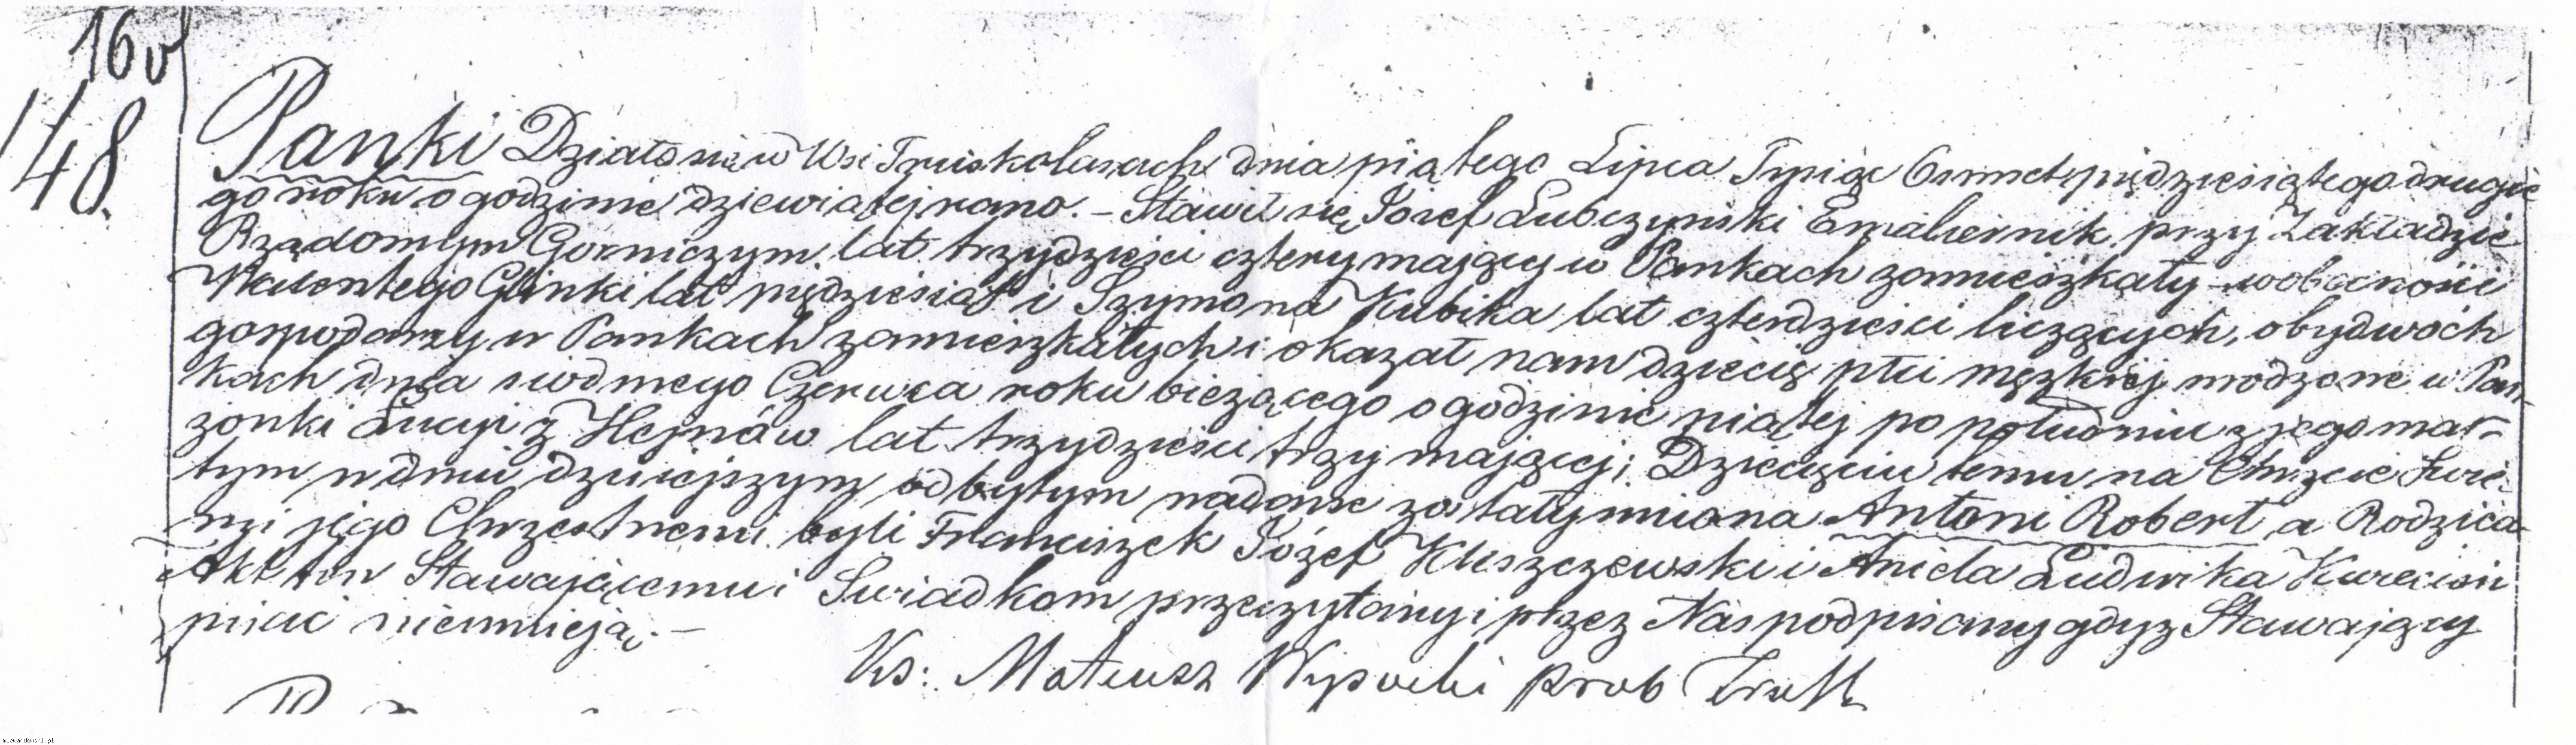 16v
148.
Panki Działo się w Wsi Truskolasach dnia piątego Lipca Tysiąc Osmset pięćdziesiątego drugie
go roku o godzinie dziewiątej rano. – Stawił się Josef Lubczyński Emaliernik przy Zakładzie
Rządowym Gorniczym lat trzydzieści cztery mający w Pankach zamieszkały – w obecności
Walentego Glinki lat pięćdziesiąt i Szymona Kubika lat czterdzieści liczących, obydwóch
gospodarzy w Pankach zamieszkałych i okazał nam dziecię płci męzkiej urodzone w Pan-
kach dnia siodmego Czerwca roku bieżącego o godzinie piątej po południu z jego mał-
żonki Łucyi z Hejnów lat trzydzieści trzy mającej; Dziecięciu temu na Chrzcie Swię-
tym w dniu dzisiejszym odbytym nadane zostały imiona Antoni Robert a Rodzica-
mi jego Chrzestnemi byli Franciszek Józef Kleszczewski i Aniela Ludwika
Akt ten Stawającemu i Swiadkom przeczytany i przez Nas podpisany gdyż Stawający
pisać nieumieją. –
Ks: Mateusz Wysocki prob
mlewandowski.pl